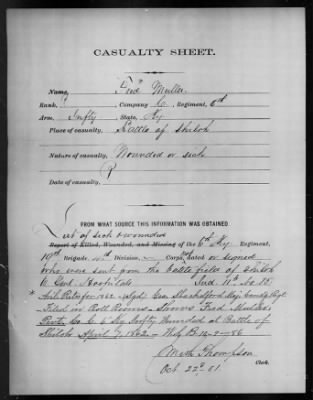 CASUALTY SHEET.
Name, Fred Muller
Rank, Company C, Regiment, 6th
Arm, Infty State, Ky
Place of casualty, Battle of Shiloh
Nature of casualty, Wounded or sick
Date of casualty,
FROM WHAT SOURCE THIS INFORMATION WAS OBTAINED
List of sick & wounded
Report of Killed, Wounded, and Missing of the 6th Ky Regiment,
19th Brigade 4th Division, Corps, dated or signed
who were sent from the battle field of Shiloh
to Genl Hospitals Ind. 11th No. 85
Filed in Roll Rooms
Co. C. 6 Ky Infty Wounded at Battle of
Shiloh April 7, 1862
Thompson
Oct 22d 81 Clerk.